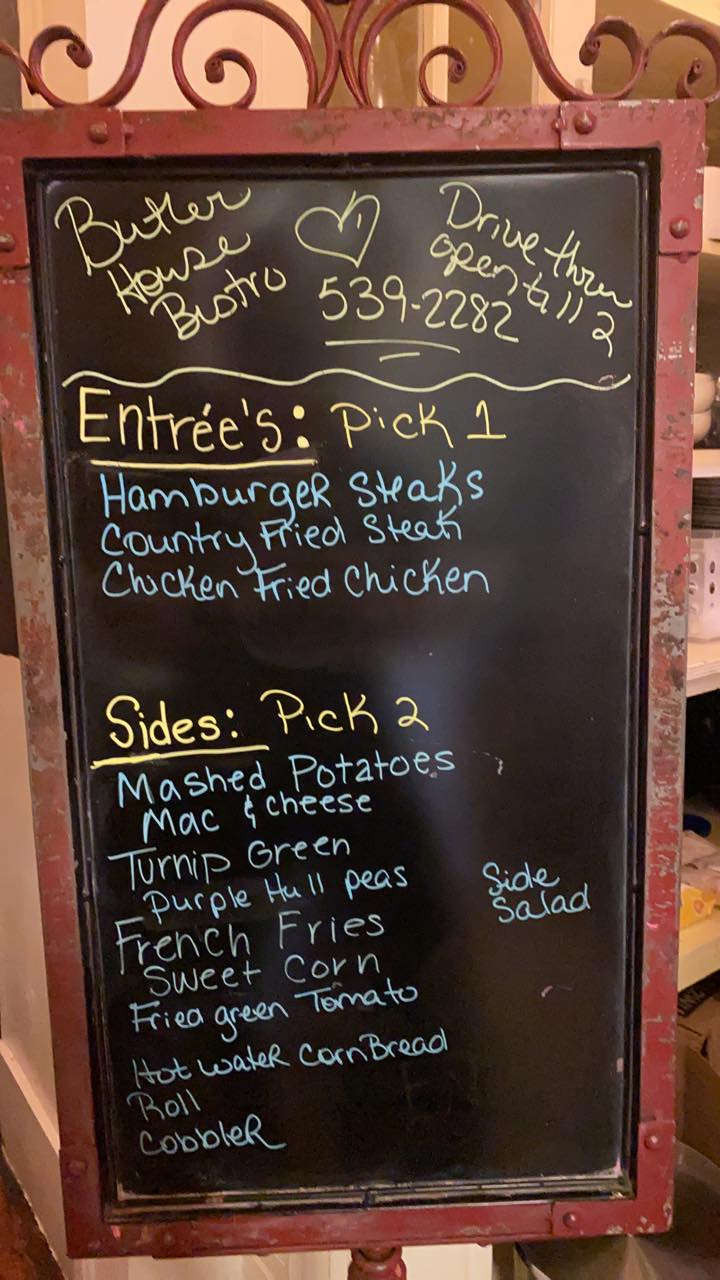 Butler
House
Bistro
539-2282
Drive thru
open till 2
Entrée's: Pick 1
Hamburger Steaks
Country Fried Steak
Chicken Fried Chicken
Sides: Pick 2
Mashed Potatoes
Mac & cheese
Turnip Green
Purple Hull peas
Side
Salad
French Fries
Sweet Corn
Fried green Tomato
Hot water CornBread
Roll
Cobbler